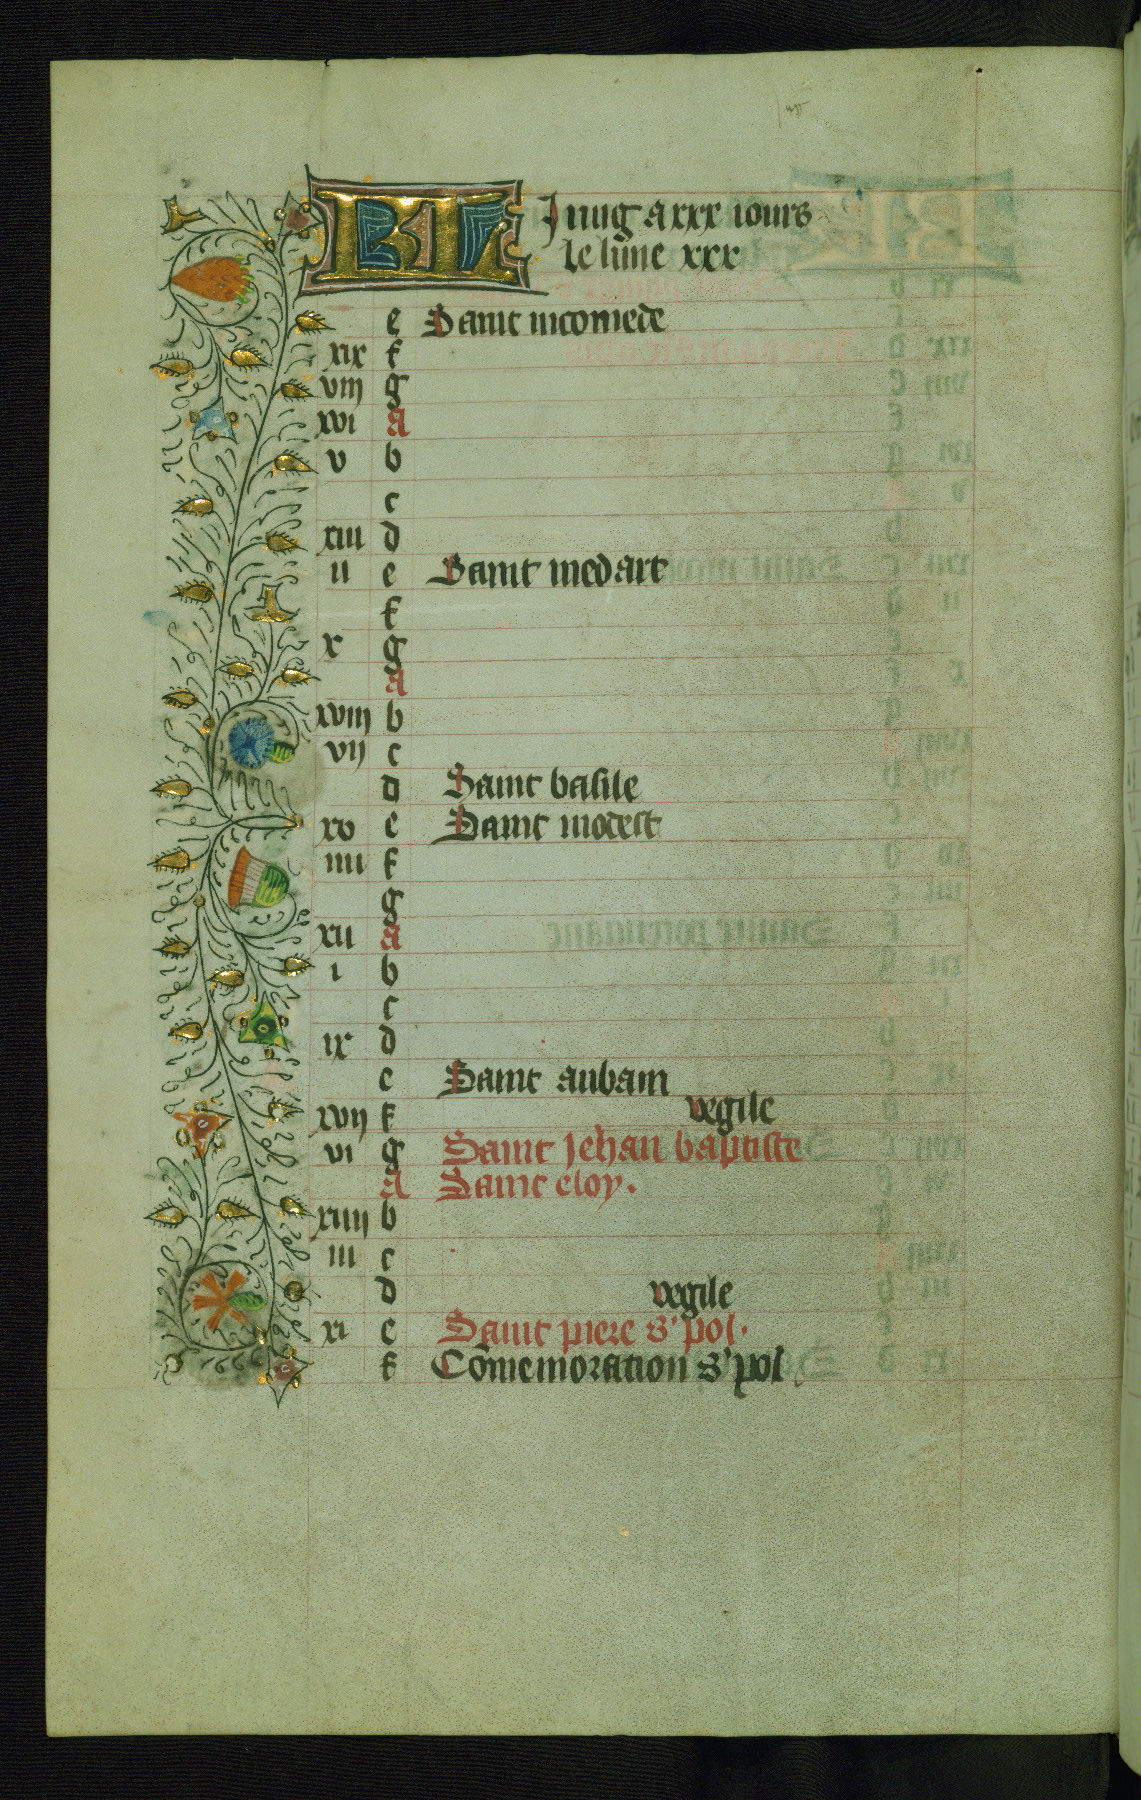 KL Juing a xxx iours
Le lune xxx
e Saint nicomede
xix f
viij g
xvi A
v b
c
xiii d
ii e Saint medart
f
x g
A
xviii b
vij c
d Saint basile
xv e Saint modest
iiii f
g
xii A
i b
c
ix d
e Saint aubain
xvij f vegile
vi g Saint Jehan baptiste
A Saint eloy.
xiiij b
iii c
d vegile
xi e Saint piere s' pol.
f Cōmemoration s' pol